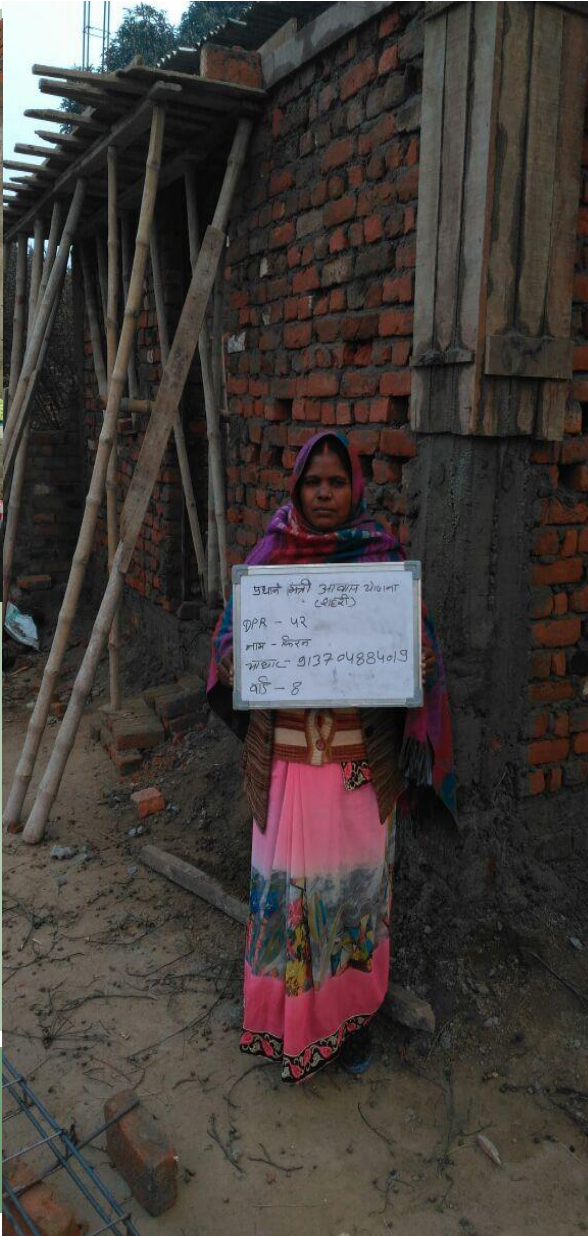 प्रधान मंत्री आवास योजना
(शहरी)
DPR - 42
नाम - किरन
आधार - 913704884019
वार्ड - 8